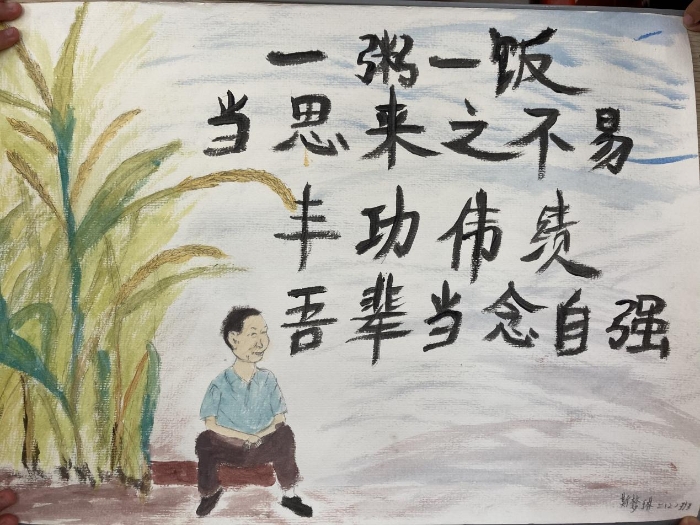 一粥一饭
当思来之不易
丰功伟绩
吾辈当念自强